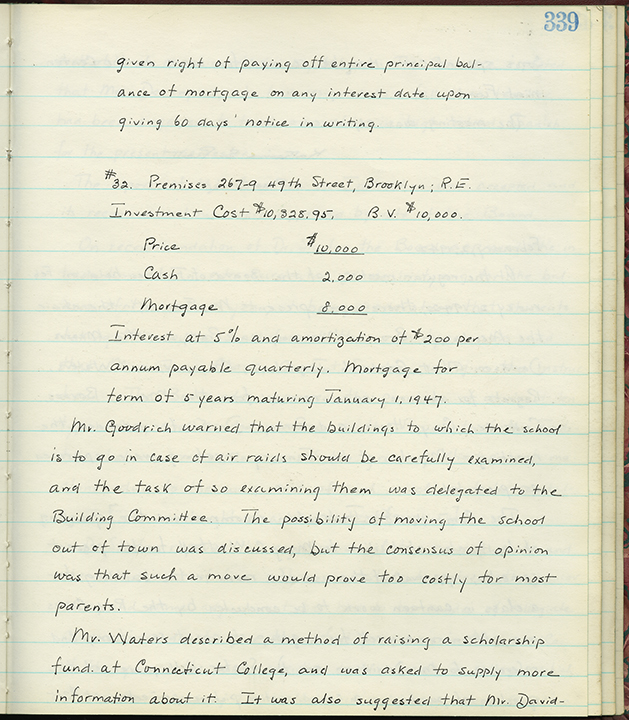 339
given right of paying off entire principal bal-
ance of mortgage on any interest date upon
giving 60 days' notice in writing.
#32. Premises 267-9 49th Street, Brooklyn; R.E.
Investment Cost $10,328.95. B.V. $10,000.
Price $10,000
Cash 2,000
Mortgage 8,000
Interest at 5% and amortization of $200 per
annum payable quarterly. Mortgage for
term of 5 years maturing January 1, 1947.
Mr. Goodrich warned that the buildings to which the school
is to go in case of air raids should be carefully examined,
and the task of so examining them was delegated to the
Building Committee. The possibility of moving the school
out of town was discussed, but the consensus of opinion
was that such a move would prove too costly for most
parents.
Mr. Waters described a method of raising a scholarship
fund at Connecticut College, and was asked to supply more
information about it. It was also suggested that Mr. David-